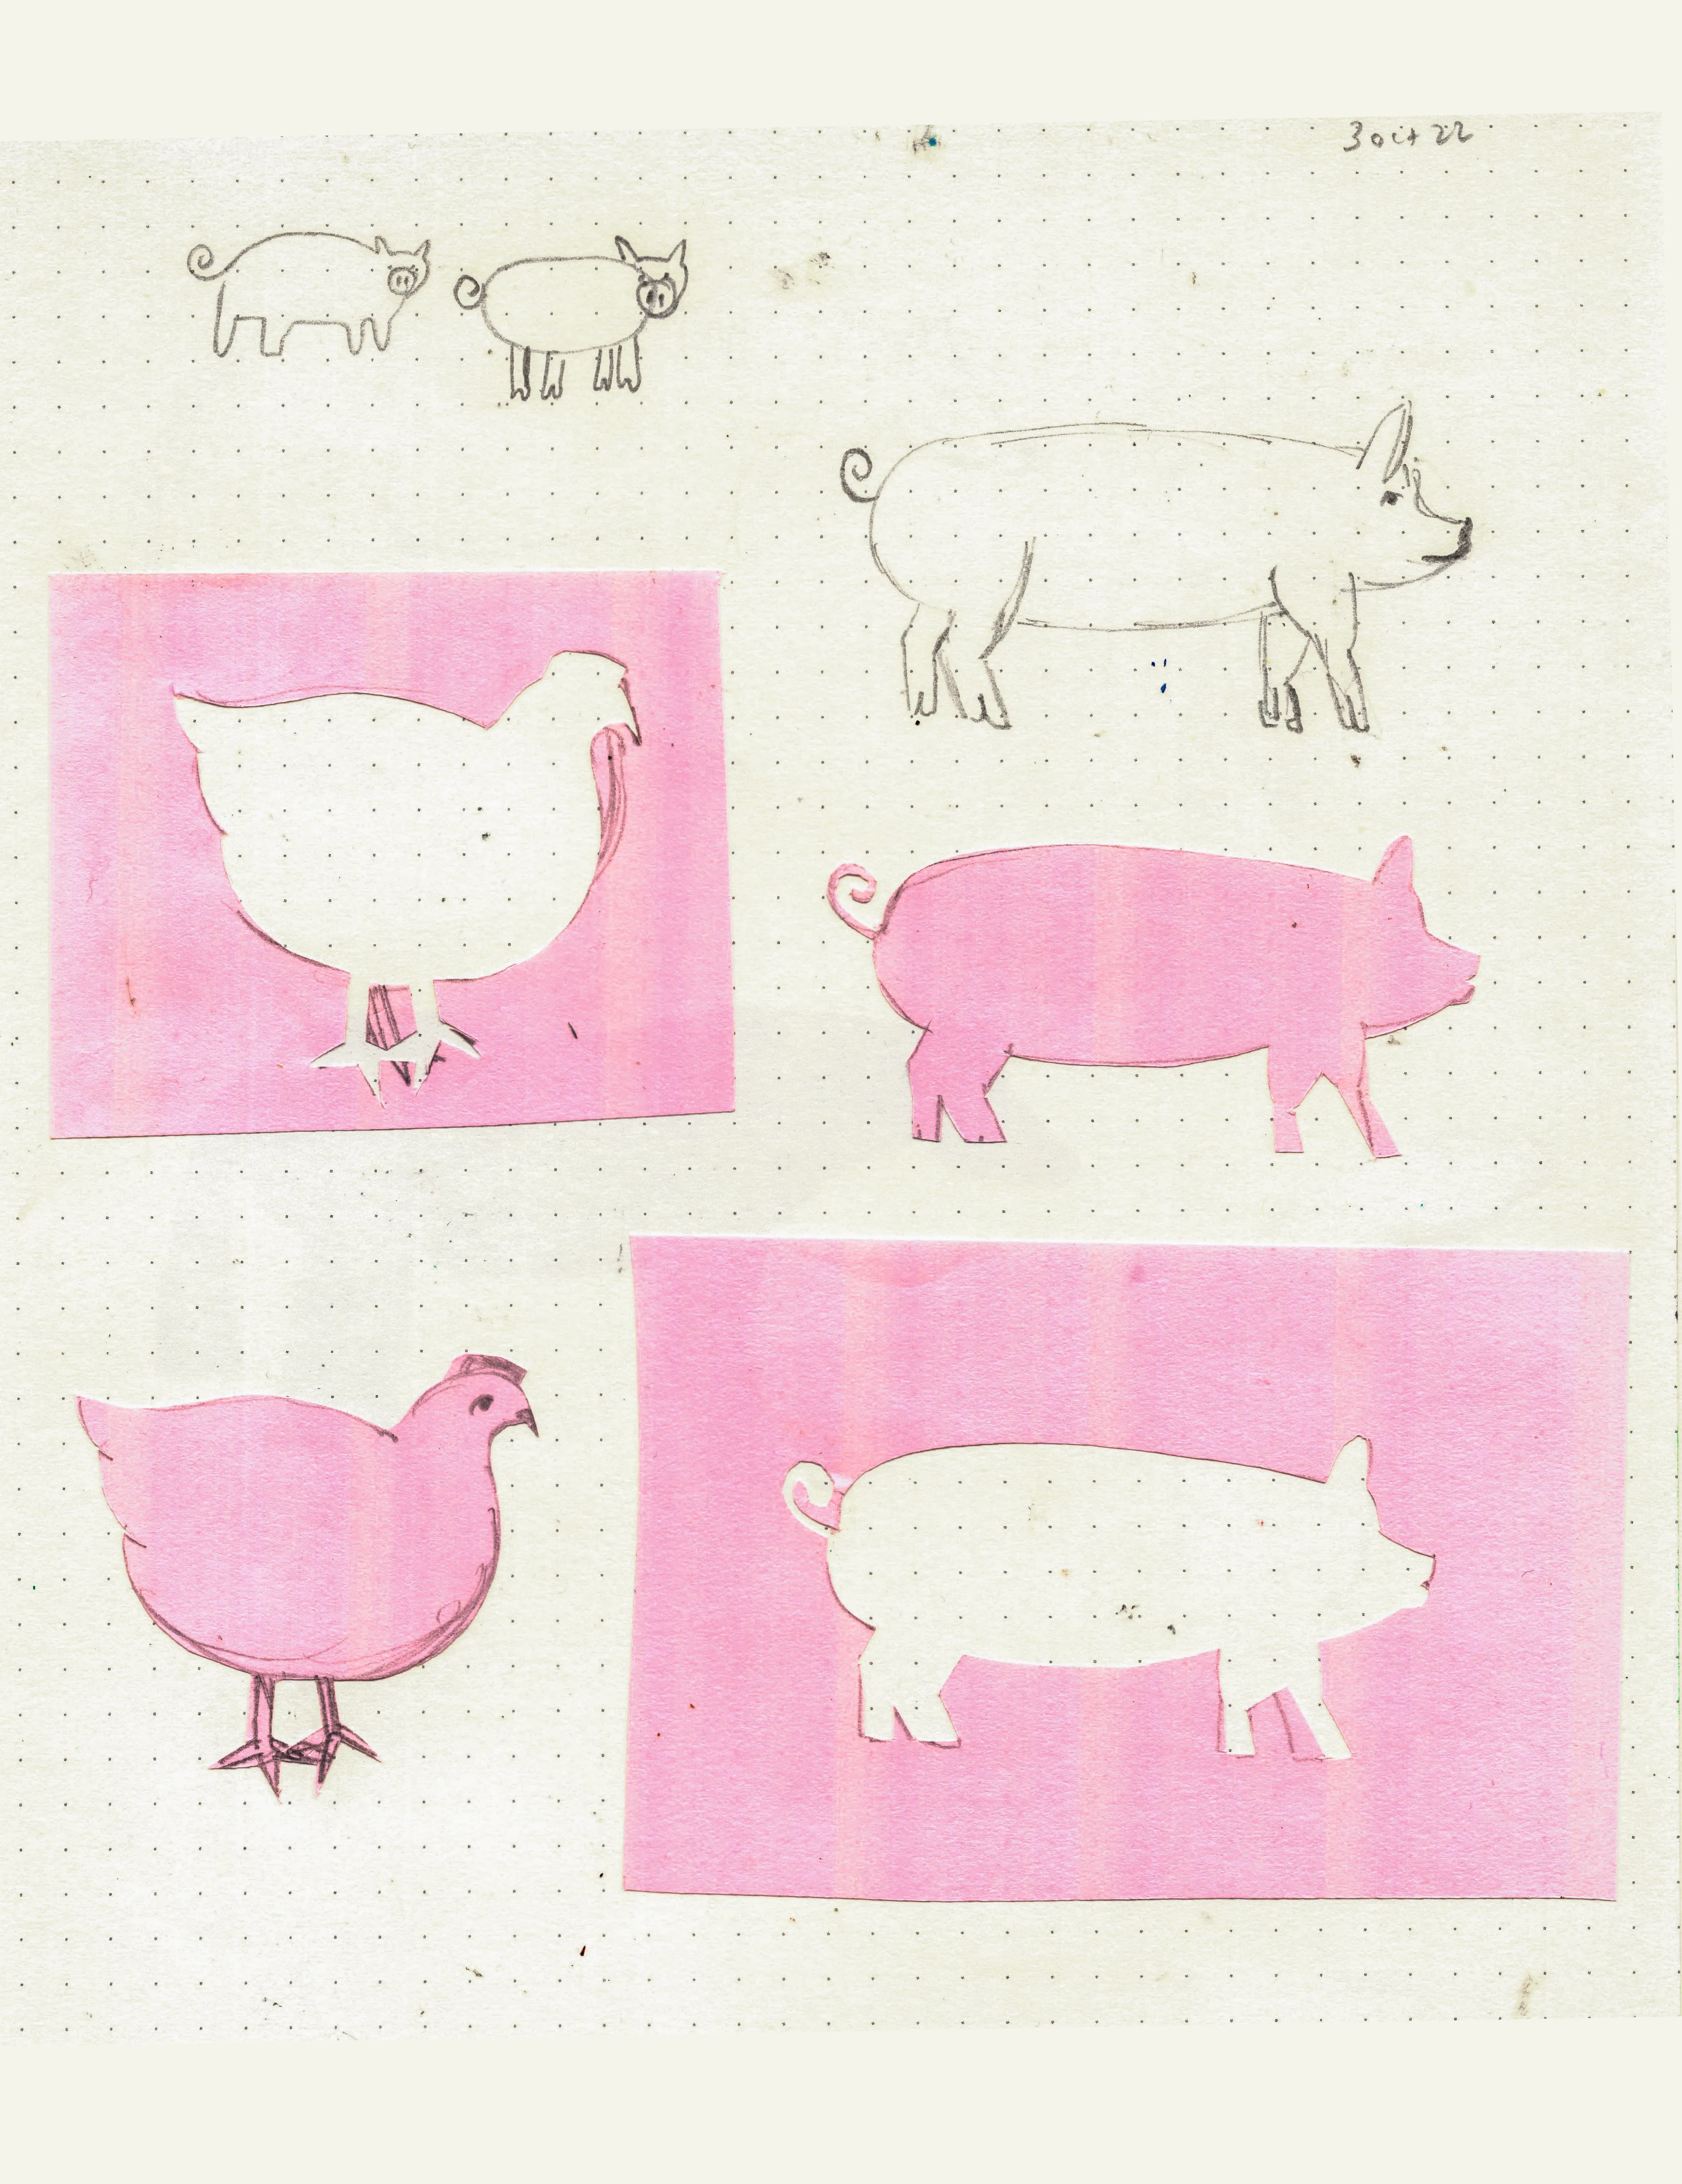 3 oct 22